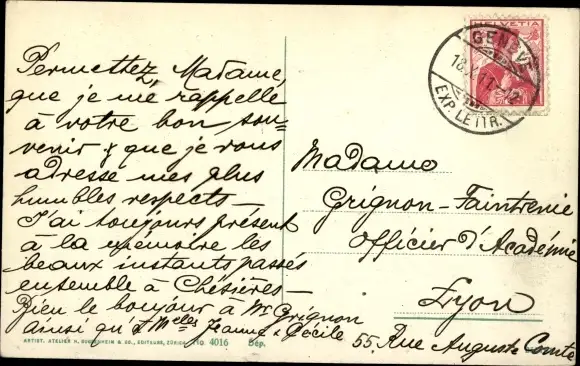 HELVETIA
GENÈVE
18.X.11.-12
EXP. LETTR.
Permettez, Madame,
que je me rappelle
à votre bon sou=
venir & que je vous
adresse mes plus
humbles respects —
J'ai toujours présent
à la mémoire les
beaux instants passés
ensemble à Chésières —
Bien le bonjour à Mr Grignon
ainsi qu'à Melles Jeanne & Cécile
Madame
Grignon-Faintrenie
Officier d'Académie
Lyon
55. Rue Auguste Comte
ARTIST. ATELIER H. GUGGENHEIM & CO., EDITEURS, ZÜRICH No. 4016 Dép.